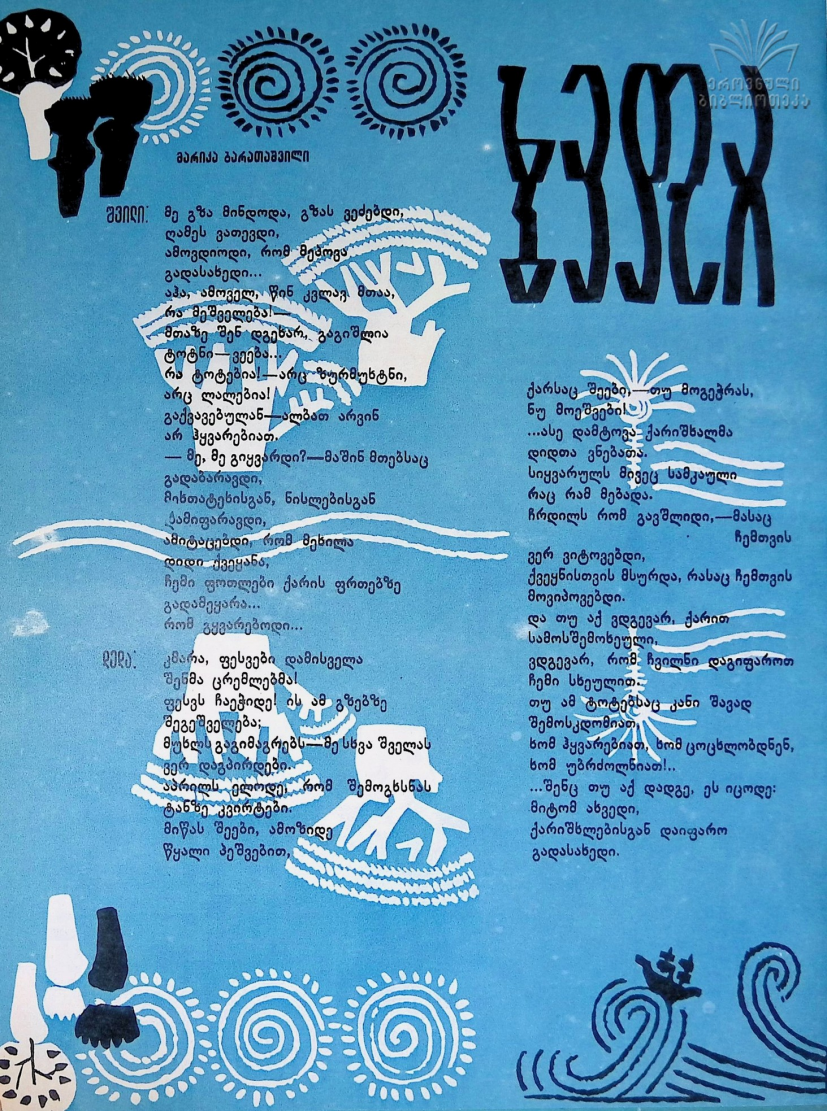 ეროვნული
ბიბლიოთეკა
მარიკა ბარათაშვილი
შვილი: მე გზა მინდოდა, გზას ვეძებდი,
ღამეს ვათევდი,
ამოვდიოდი, რომ მეპოვა
გადასახედი...
აჰა, ამოველ, წინ კვლავ მთაა,
რა მეშველება!—
მთაზე შენ დგეხარ, გაგიშლია
ტოტნი—ვეება...
რა ტოტებია!—არც ზურმუხტნი,
არც ლალებია!
გაქვავებულან—ალბათ არვინ
არ ჰყვარებიათ.
— მე, მე გიყვარდი?—მაშინ მთებსაც
გადაბარავდი,
მიხთატეხისგან, ნისლებისგან
ქამიფარავდი,
ამიტაცებდი, რომ მეხილა
დიდი ქვეყანა,
ჩემი ფოთლები ქარის ფრთებზე
გადამეყარა...
რომ გყვარებოდი...
დედა: კმარა, ფესვები დამისველა
შენმა ცრემლებმა!
ფესვს ჩაეჭიდე! ის ამ გზებზე
შეგეშველება;
მუხლს გაგიმაგრებს—მე სხვა შველას
ვერ დაგპირდები..
აპრილს ელოდე, რომ შემოგხსნას
ტანზე კვირტები.
მიწას შეები, ამოზიდე
წყალი პეშვებით,
ქარსაც შეები,—თუ მოგეჭრას,
ნუ მოეშვები!
...ასე დამტოვა ქარიშხალმა
დიდთა ვნებათა.
სიყვარულს მივეც სამკაული
რაც რამ მებადა.
ჩრდილს რომ გავშლიდი,—მასაც
ჩემთვის
ვერ ვიტოვებდი,
ქვეყნისთვის მსურდა, რასაც ჩემთვის
მოვიპოვებდი.
და თუ აქ ვდგევარ, ქარით
სამოსშემოხეული,
ვდგევარ, რომ ჩვილნი დაგიფაროთ
ჩემი სხეულით.
თუ ამ ტოტებსაც კანი შავად
შემოსკდომიათ,
ხომ ჰყვარებიათ, ხომ ცოცხლობდნენ,
ხომ უბრძოლნიათ!..
...შენც თუ აქ დადგე, ეს იცოდე:
მიტომ ახვედი,
ქარიშხლებისგან დაიფარო
გადასახედი.